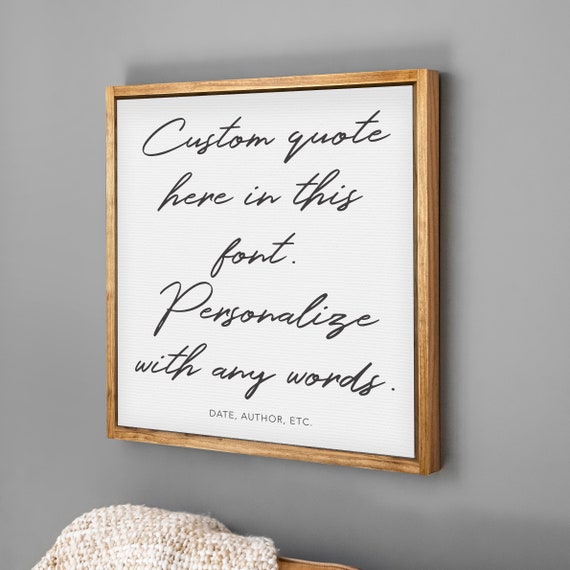 Custom quote
here in this
font.
Personalize
with any words.
DATE, AUTHOR, ETC.